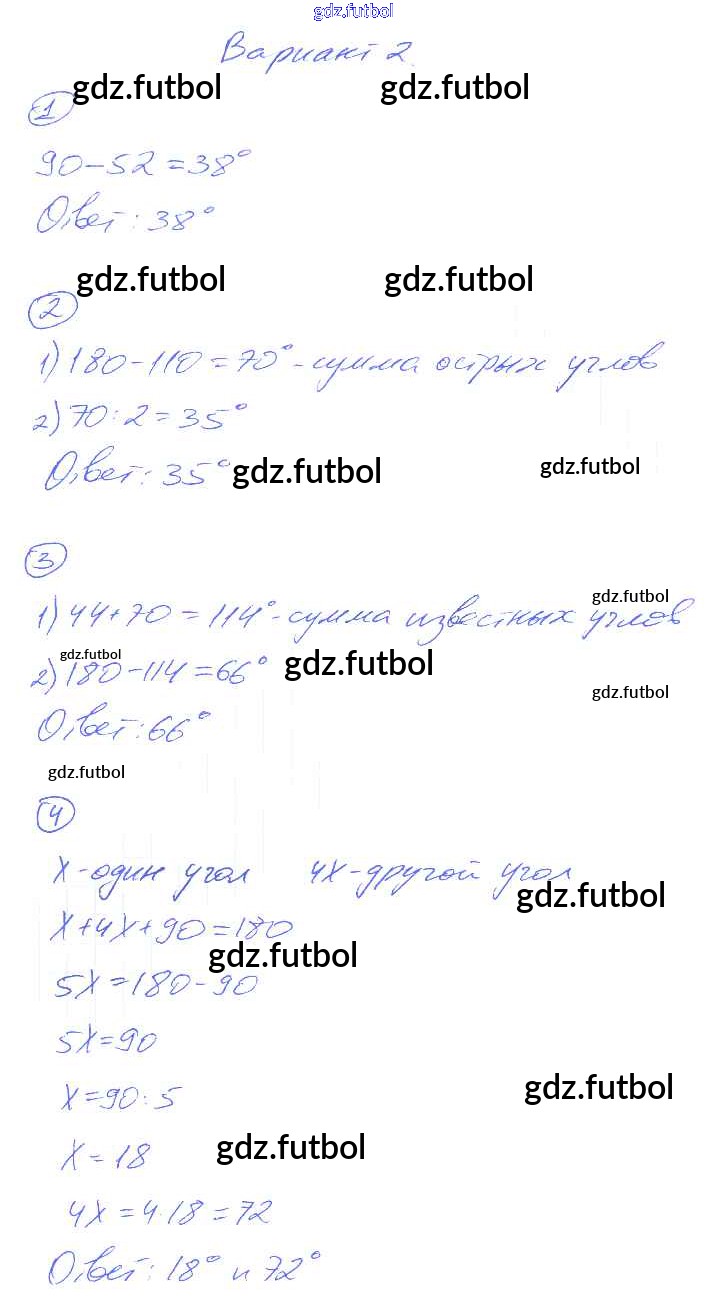 gdz.futbol
Вариант 2
gdz.futbol gdz.futbol
1
90-52=38°
Ответ: 38°
gdz.futbol gdz.futbol
2
1) 180-110=70° - сумма острых углов
2) 70:2=35°
Ответ: 35°
gdz.futbol gdz.futbol
3
gdz.futbol
1) 44+70=114° - сумма известных углов
gdz.futbol gdz.futbol
2) 180-114=66°
gdz.futbol
Ответ: 66°
gdz.futbol
4
x-один угол 4x-другой угол
gdz.futbol
x+4x+90=180
gdz.futbol
5x=180-90
5x=90
gdz.futbol
x=90:5
gdz.futbol
x=18
4x=4·18=72
Ответ: 18° и 72°